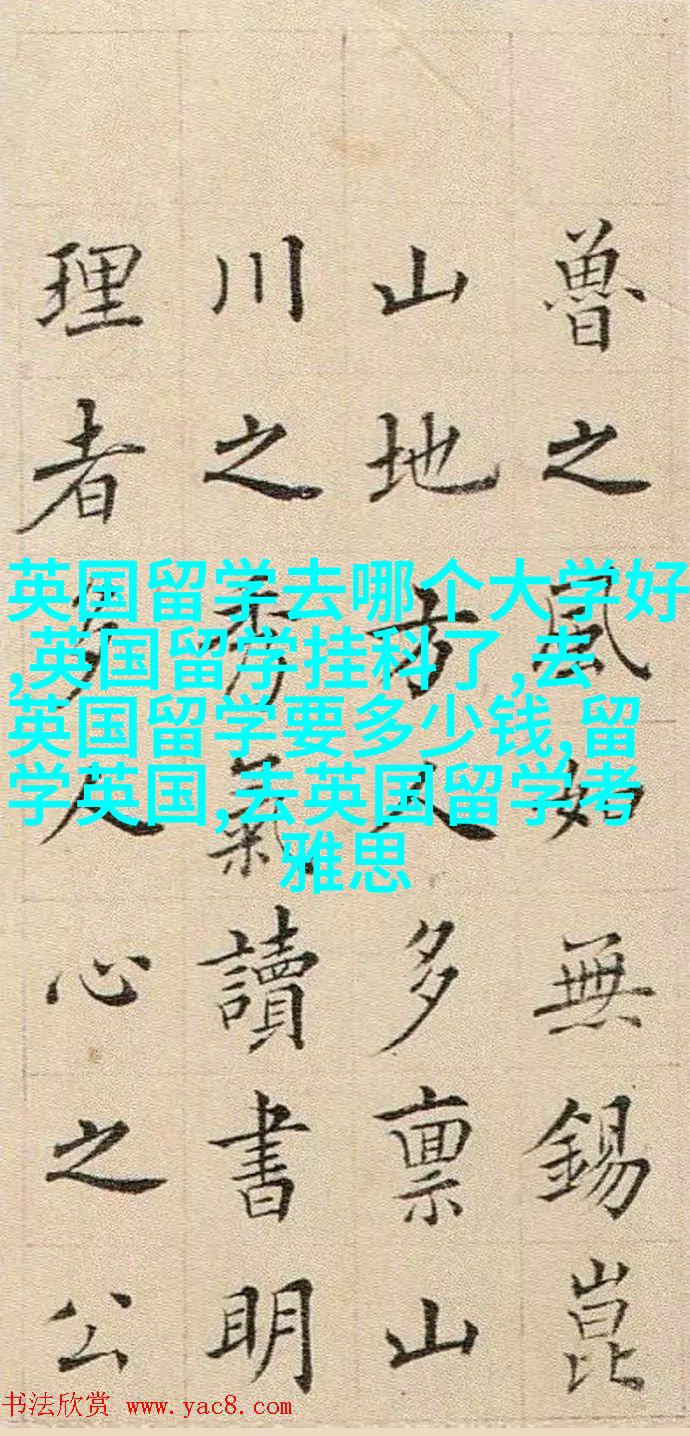 魯之風如無錫崑
山地方人多稟山
川之秀氣讀書明
理者多人心之公
英国留学去哪个大学好
,英国留学挂科了,去
英国留学要多少钱,留
学英国,去英国留学考
雅思
书法欣赏 www.yac8.com